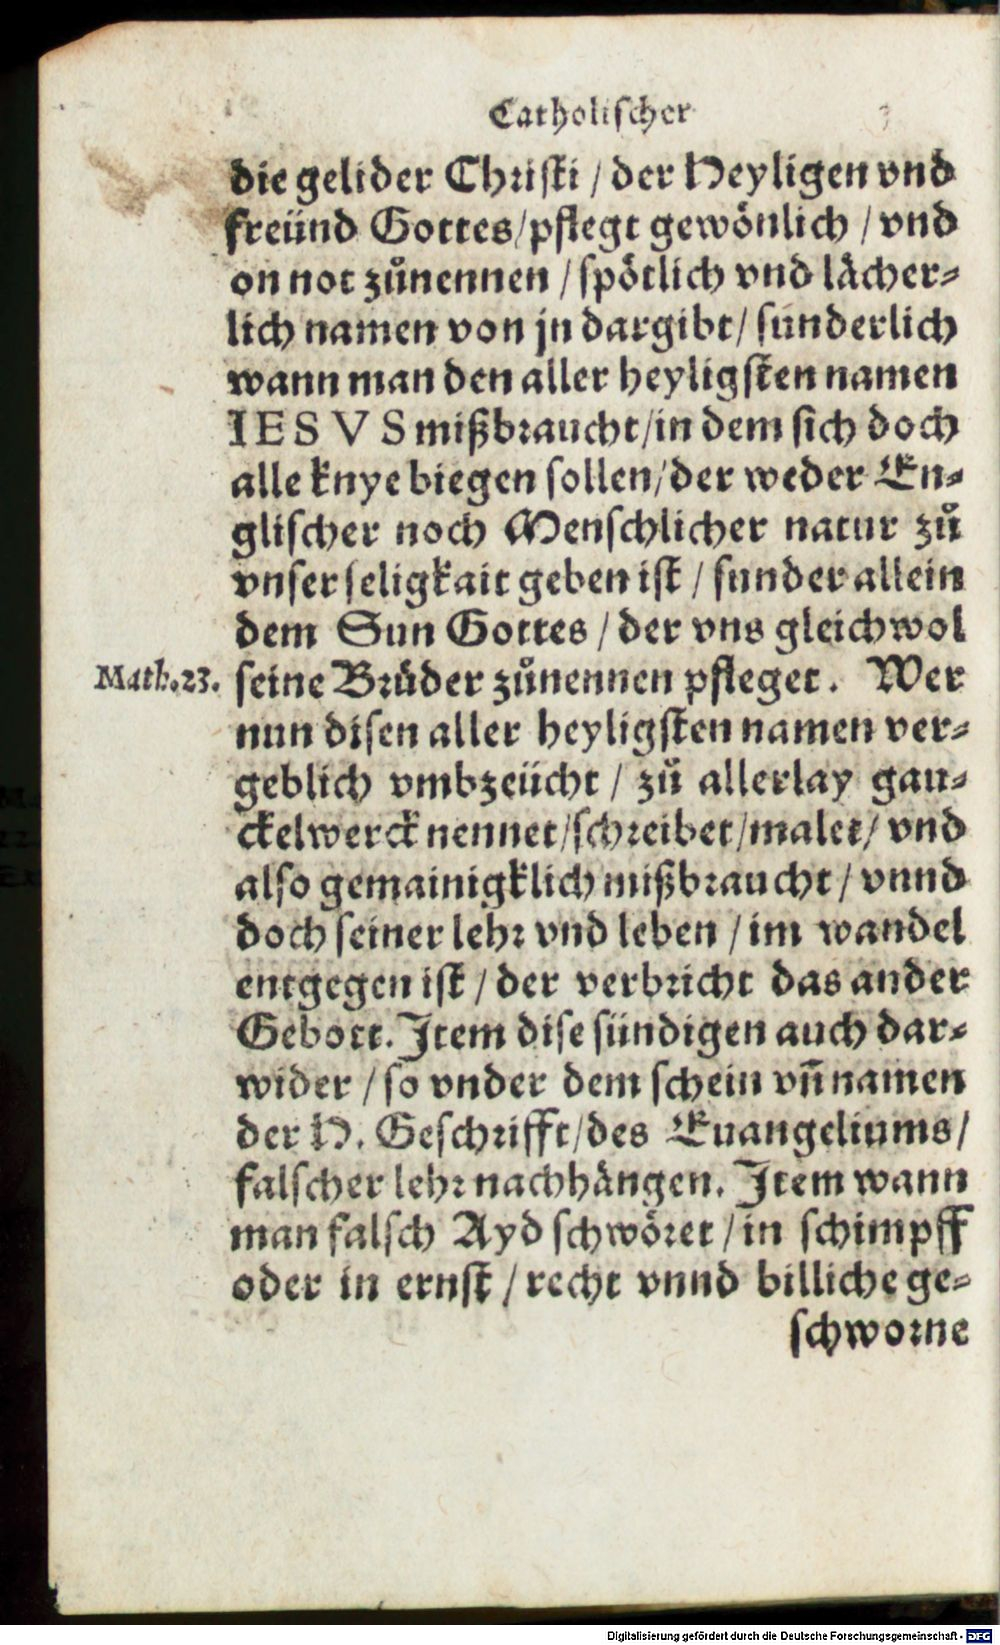 Catholischer
die gelider Christi / der Heyligen vnd
freünd Gottes / pflegt gewönlich / vnd
on not zůnennen / spötlich vnd lächer-
lich namen von jn dargibt / sunderlich
wann man den aller heyligsten namen
IESVS mißbraucht / in dem sich doch
alle knye biegen sollen / der weder En-
glischer noch Menschlicher natur zů
vnser seligkait geben ist / sunder allein
dem Sun Gottes / der vns gleichwol
Math. 23. seine Brüder zůnennen pfleget. Wer
nun disen aller heyligsten namen ver-
geblich vmbzeücht / zů allerlay gau-
ckelwerck nennet / schreibet / malet / vnd
also gemainigklich mißbraucht / vnnd
doch seiner lehr vnd leben / im wandel
entgegen ist / der verbricht das ander
Gebott. Item dise sündigen auch dar-
wider / so vnder dem schein vñ namen
der H. Geschrifft / des Euangeliums /
falscher lehr nachhängen. Item wann
man falsch Ayd schwöret / in schimpff
oder in ernst / recht vnnd billiche ge-
schworne
Digitalisierung gefördert durch die Deutsche Forschungsgemeinschaft - DFG